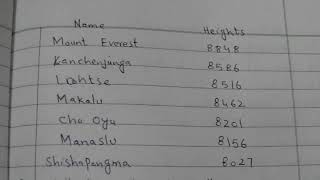 Name Heights
Mount Everest 8848
Kanchenjunga 8586
Lohtse 8516
Makalu 8462
Cho Oyu 8201
Manaslu 8156
Shishapangma 8027